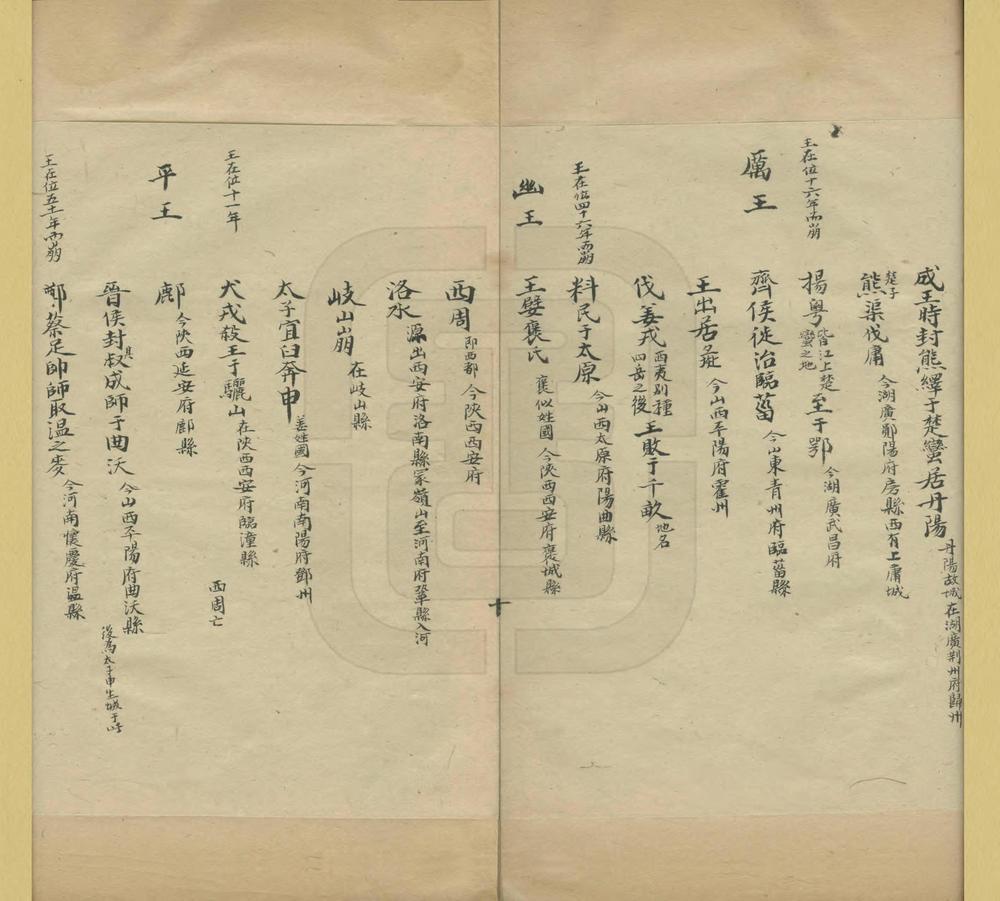 成王時封熊繹于楚蠻居丹陽丹陽故城在湖廣荆州府歸州
楚子熊渠伐庸今湖廣鄖陽府房縣西有上庸城
王在位十六年而崩
揚粵皆江上楚蠻之地至于鄂今湖廣武昌府
厲王
齊侯徙治臨菑今山東青州府臨菑縣
王出居彘今山西平陽府霍州
伐姜戎西夷别種四岳之後王敗于千畝地名
王在位四十六年而崩
料民于太原今山西太原府陽曲縣
幽王
王嬖褒氏褒似姓國今陝西西安府褒城縣
西周即西都今陝西西安府
洛水源出西安府洛南縣冢嶺山至河南府鞏縣入河
岐山崩在岐山縣
太子宜臼奔申姜姓國今河南南陽府鄧州
王在位十一年
犬戎殺王于驪山在陝西西安府臨潼縣
西周亡
平王
鄜今陝西延安府鄜縣
晉侯封其叔成師于曲沃今山西平陽府曲沃縣後為太子申生城于此
王在位五十一年而崩
鄭蔡足帥師取溫之麥今河南懷慶府溫縣
十